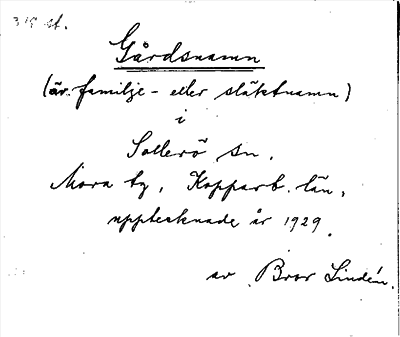 319 st.
Gårdsnamn
(är familje- eller släktnamn)
i
Sollerö sn.
Mora tg, Kopparb. län,
upptecknade år 1929.
av Bror Lindén.